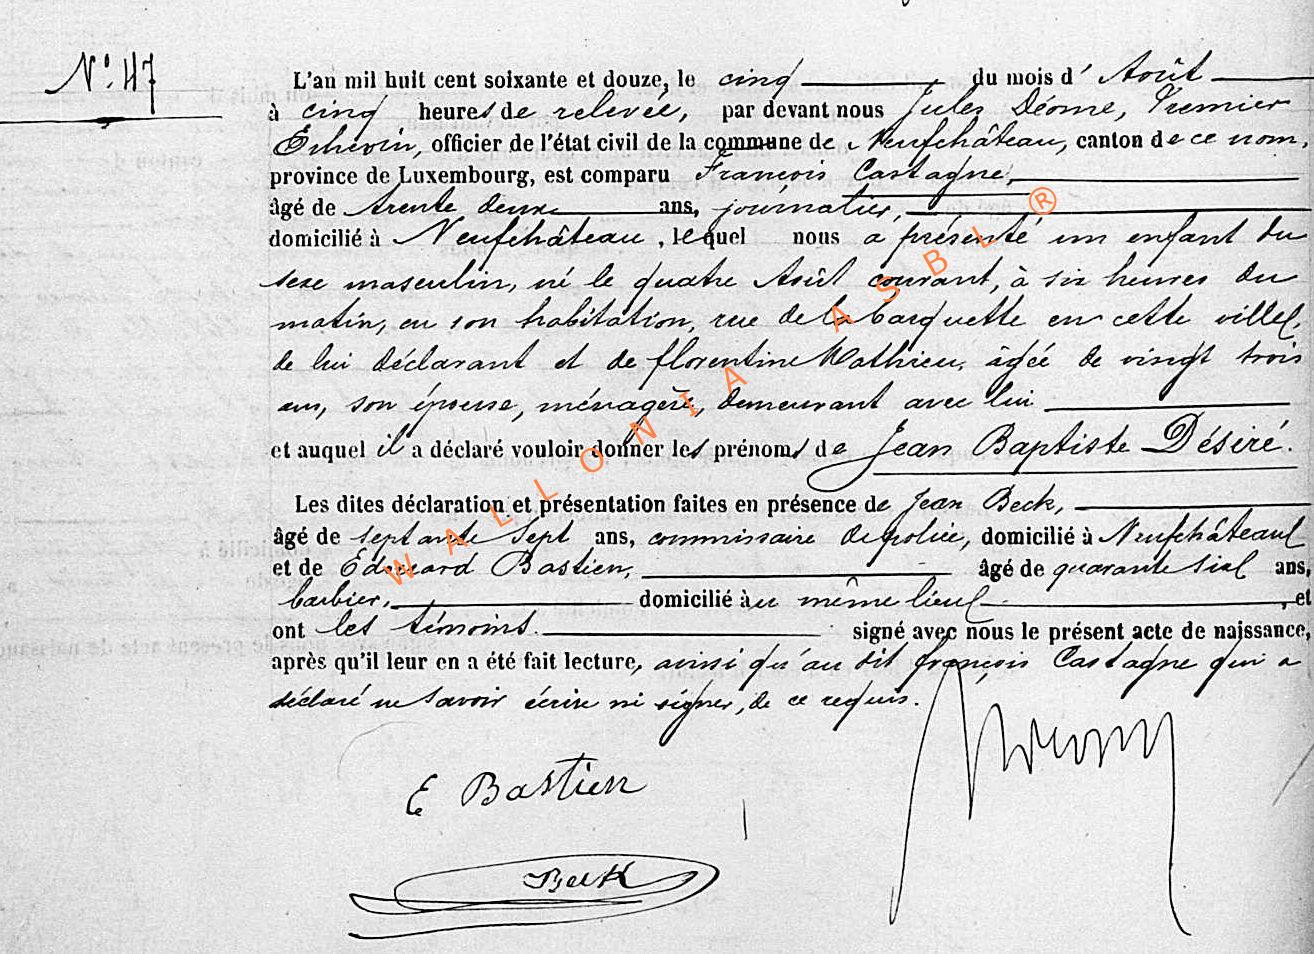 N° 47
L'an mil huit cent soixante et douze, le cinq du mois d' Août
à cinq heures de relevée, par devant nous Jules Déome, Premier
Echevin, officier de l'état civil de la commune de Neufchâteau, canton de ce nom,
province de Luxembourg, est comparu François Castagne,
âgé de trente deux ans, journalier,
domicilié à Neufchâteau, lequel nous a présenté un enfant du
sexe masculin, né le quatre Août courant, à six heures du
matin, en son habitation, rue de la barquette en cette ville,
de lui déclarant et de florentine Mathieu, âgée de vingt trois
ans, son épouse, ménagère, demeurant avec lui
et auquel il a déclaré vouloir donner les prénoms de Jean Baptiste Désiré.
Les dites déclaration et présentation faites en présence de Jean Beck,
âgé de septante sept ans, commissaire de police, domicilié à Neufchâteau
et de Edouard Bastien, âgé de quarante six ans,
barbier, domicilié au même lieu, et
ont les témoins signé avec nous le présent acte de naissance,
après qu'il leur en a été fait lecture, ainsi qu'au dit françois Castagne qui a
déclaré ne savoir écrire ni signer, de ce requis.
E Bastien
Beck
WALLONIA ASBL ®